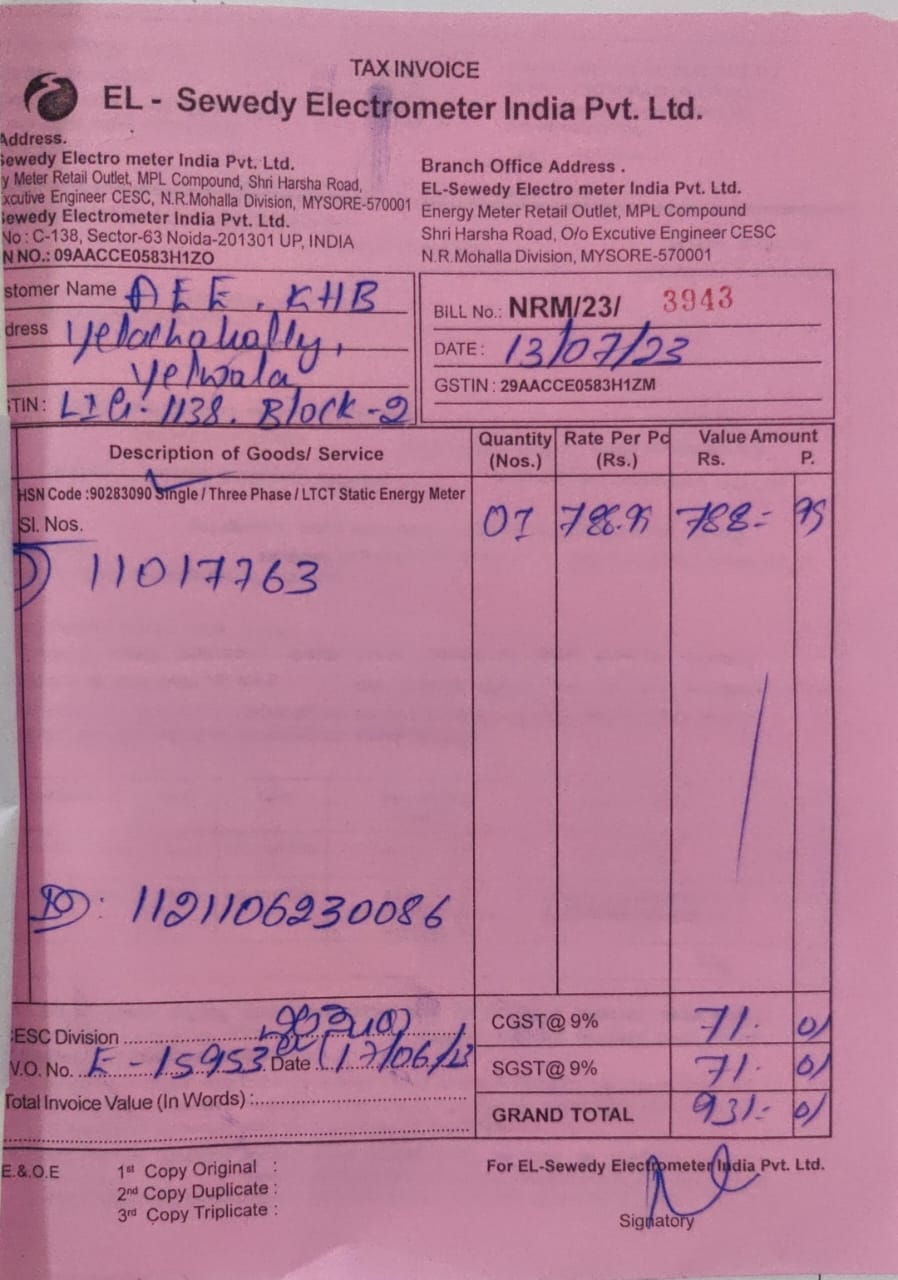 TAX INVOICE
EL - Sewedy Electrometer India Pvt. Ltd.
Address.
Sewedy Electro meter India Pvt. Ltd.
y Meter Retail Outlet, MPL Compound, Shri Harsha Road,
Excutive Engineer CESC, N.R.Mohalla Division, MYSORE-570001
Sewedy Electrometer India Pvt. Ltd.
No : C-138, Sector-63 Noida-201301 UP, INDIA
N NO.: 09AACCE0583H1ZO
Branch Office Address .
EL-Sewedy Electro meter India Pvt. Ltd.
Energy Meter Retail Outlet, MPL Compound
Shri Harsha Road, O/o Excutive Engineer CESC
N.R.Mohalla Division, MYSORE-570001
stomer Name AEE, KHB
dress Yelachahally,
Yelwala
STIN : LIG-1138. Block-2
BILL No.: NRM/23/ 3943
DATE : 13/07/23
GSTIN : 29AACCE0583H1ZM
Description of Goods/ Service Quantity (Nos.) Rate Per Pc (Rs.) Value Amount Rs. P.
HSN Code :90283090 Single / Three Phase / LTCT Static Energy Meter
Sl. Nos. 01 788.99 788=99
1) 11017763
: 1121106230086
CESC Division
V.O. No. E-15953 Date (17/06/23
Total Invoice Value (In Words) :
CGST@ 9% 71. 01
SGST@ 9% 71. 01
GRAND TOTAL 931- 01
E.&.O.E
1st Copy Original :
2nd Copy Duplicate :
3rd Copy Triplicate :
For EL-Sewedy Electrometer India Pvt. Ltd.
Signatory